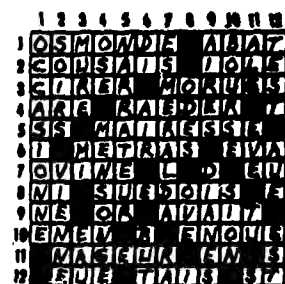 1 2 3 4 5 6 7 8 9 10 11 12
1 OSMONDE ABAT
2 COUSAIS IOLE
3 CIRER MORUES
4 ARE RAEDER T
5 SS MAIRESSE
6 I METRAS EVA
7 OVINE L D EU
8 NI SUEDOIS E
9 NE OR AVAIT
10 ENEN R ENOUE
11 NAGEUR EN S
12 EUE TAIS ST